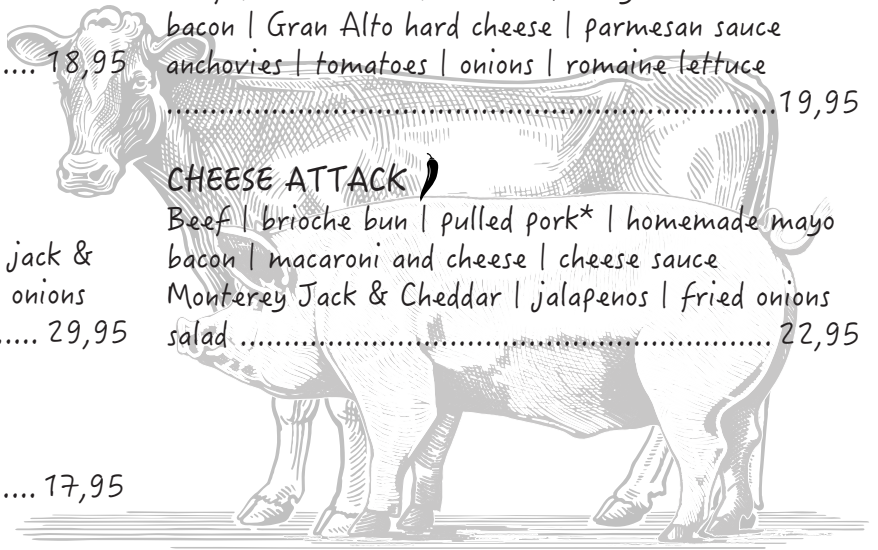 bacon | Gran Alto hard cheese | parmesan sauce
.... 18,95
anchovies | tomatoes | onions | romaine lettuce
..............................................................................19,95
CHEESE ATTACK
Beef | brioche bun | pulled pork* | homemade mayo
jack &
bacon | macaroni and cheese | cheese sauce
onions
Monterey Jack & Cheddar | jalapenos | fried onions
..... 29,95
salad .................................................................... 22,95
.... 17,95